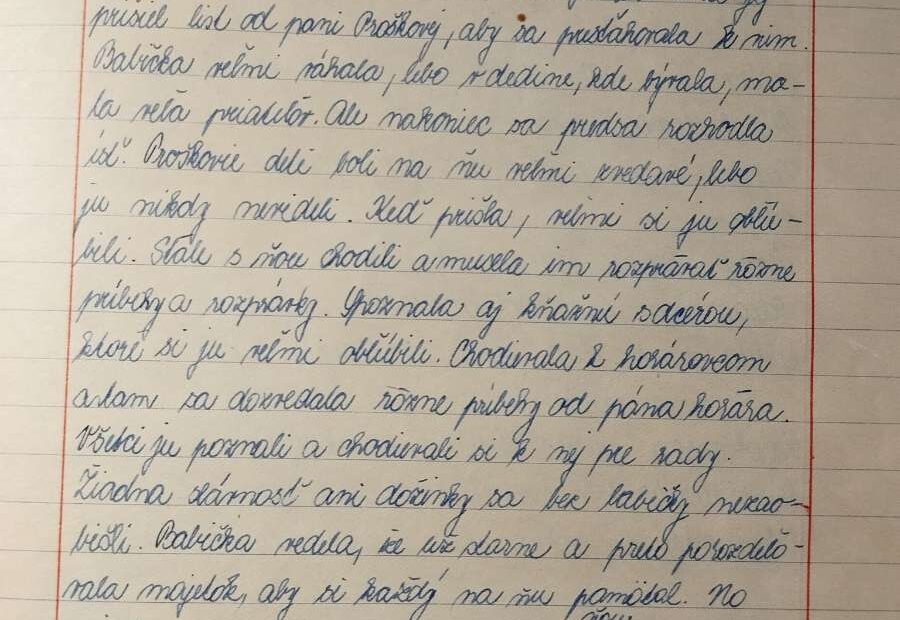 prišiel list od pani Proškovej, aby sa presťahovala k nim.
Babička veľmi váhala, lebo v dedine, kde bývala, ma-
la veľa priateľov. Ale nakoniec sa predsa rozhodla
ísť. Proškovie deti boli na ňu veľmi zvedavé, lebo
ju nikdy nevideli. Keď prišla, veľmi si ju obľú-
bili. Stále s ňou chodili a musela im rozprávať rôzne
príbehy a rozprávky. Spoznala aj kňažnú s dcérou,
ktoré si ju veľmi obľúbili. Chodievala k horárovcom
a tam sa dozvedala rôzne príbehy od pána horára.
Všetci ju poznali a chodievali si k nej pre rady.
Žiadna slávnosť ani dožinky sa bez babičky nezao-
bišli. Babička vedela, že už starne a preto porozdeľo-
vala majetok, aby si každý na ňu pamätal. No